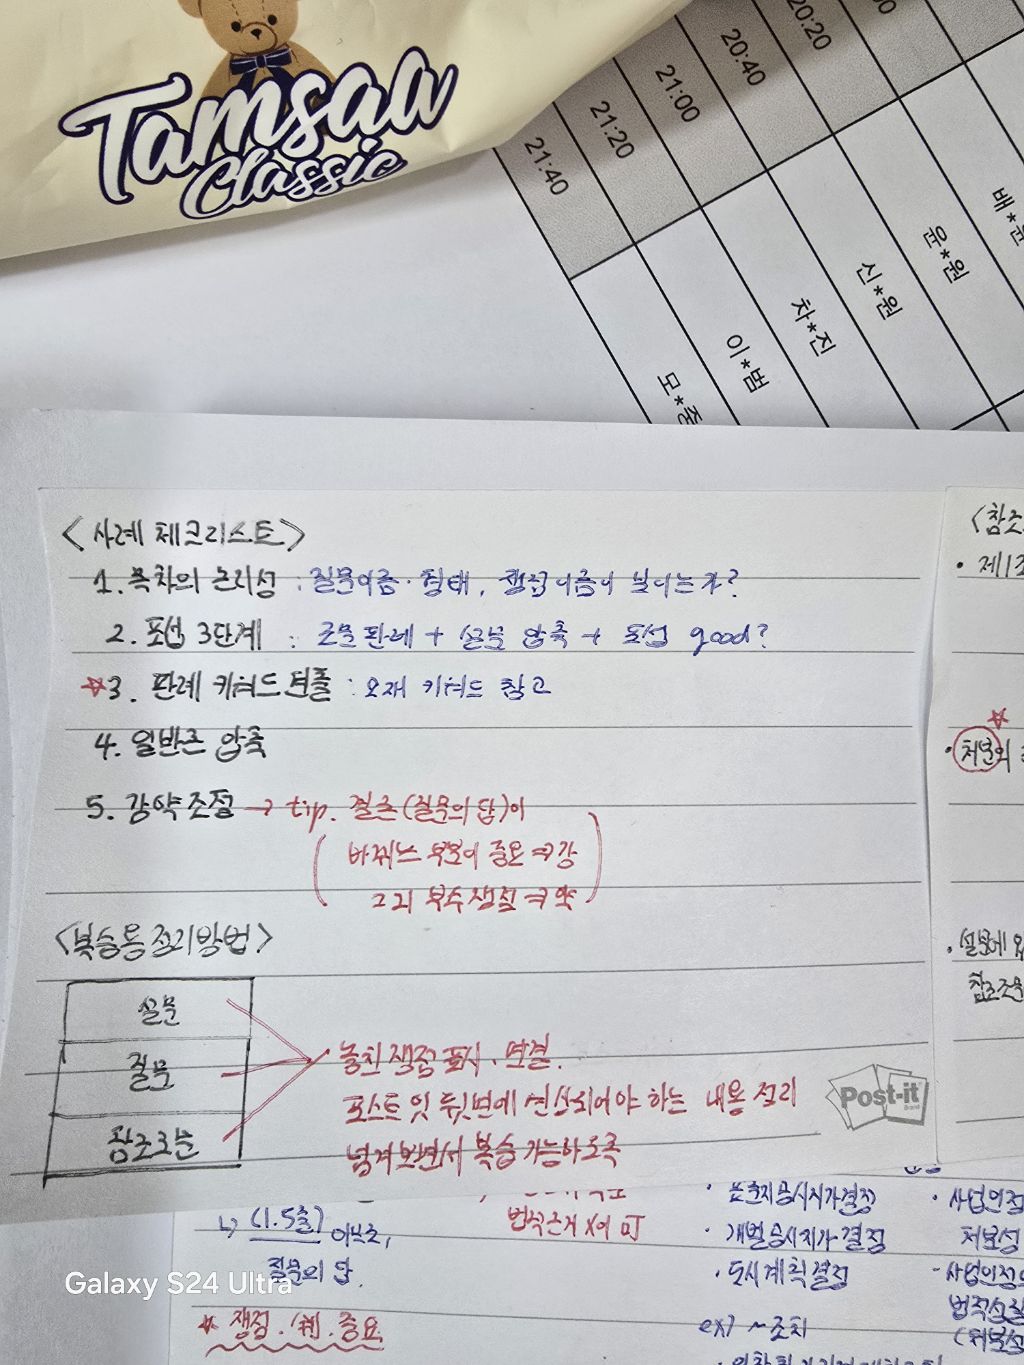 Tamsaa
Classic
20:20
20:40
21:00
21:20
21:40
배*
윤*원
신*원
차*진
이*범
모*중
<사례 체크리스트>
1. 목차의 논리성 : 질문이름·형태, 쟁점이름이 보이는가?
2. 포섭 3단계 : 근물판례 + 설문 압축 + 포섭 good?
☆3. 판례 키워드 현출 : 교재 키워드 참고
4. 일반론 압축
5. 강약조절 → tip. 결론(질문의 답)이
바뀌는 부분이 중요 ⇒ 강
그외 부수쟁점 ⇒ 약
<복습용 정리방법>
설문
질문
참조조문
놓친 쟁점 표시·연결.
포스트잇 뒷면에 연상되어야 하는 내용 정리
넘겨보면서 복습 가능하도록
Post-it
Brand
<참조
• 제1조
☆
• 처분의
• 설문에
참조조문
↳ (1.5줄)
질문의 답.
☆ 쟁점. 배. 중요
법적근거
• 표준지공시지가결정
• 개별공시지가 결정
• 도시계획결정
ex) ~조치
• 사업인정
처분성
- 사업인정의
법적성질
(처분성
Galaxy S24 Ultra